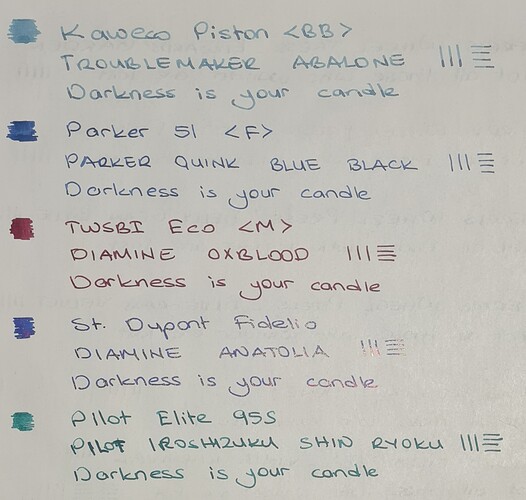 Kaweco Piston <BB>
TROUBLEMAKER ABALONE
Darkness is your candle
Parker 51 <F>
PARKER QUINK BLUE BLACK
Darkness is your candle
TWSBI Eco <M>
DIAMINE OXBLOOD
Darkness is your candle
St. Dupont Fidelio
DIAMINE ANATOLIA
Darkness is your candle
Pilot Elite 95S
PILOT IROSHIZUKU SHIN RYOKU
Darkness is your candle